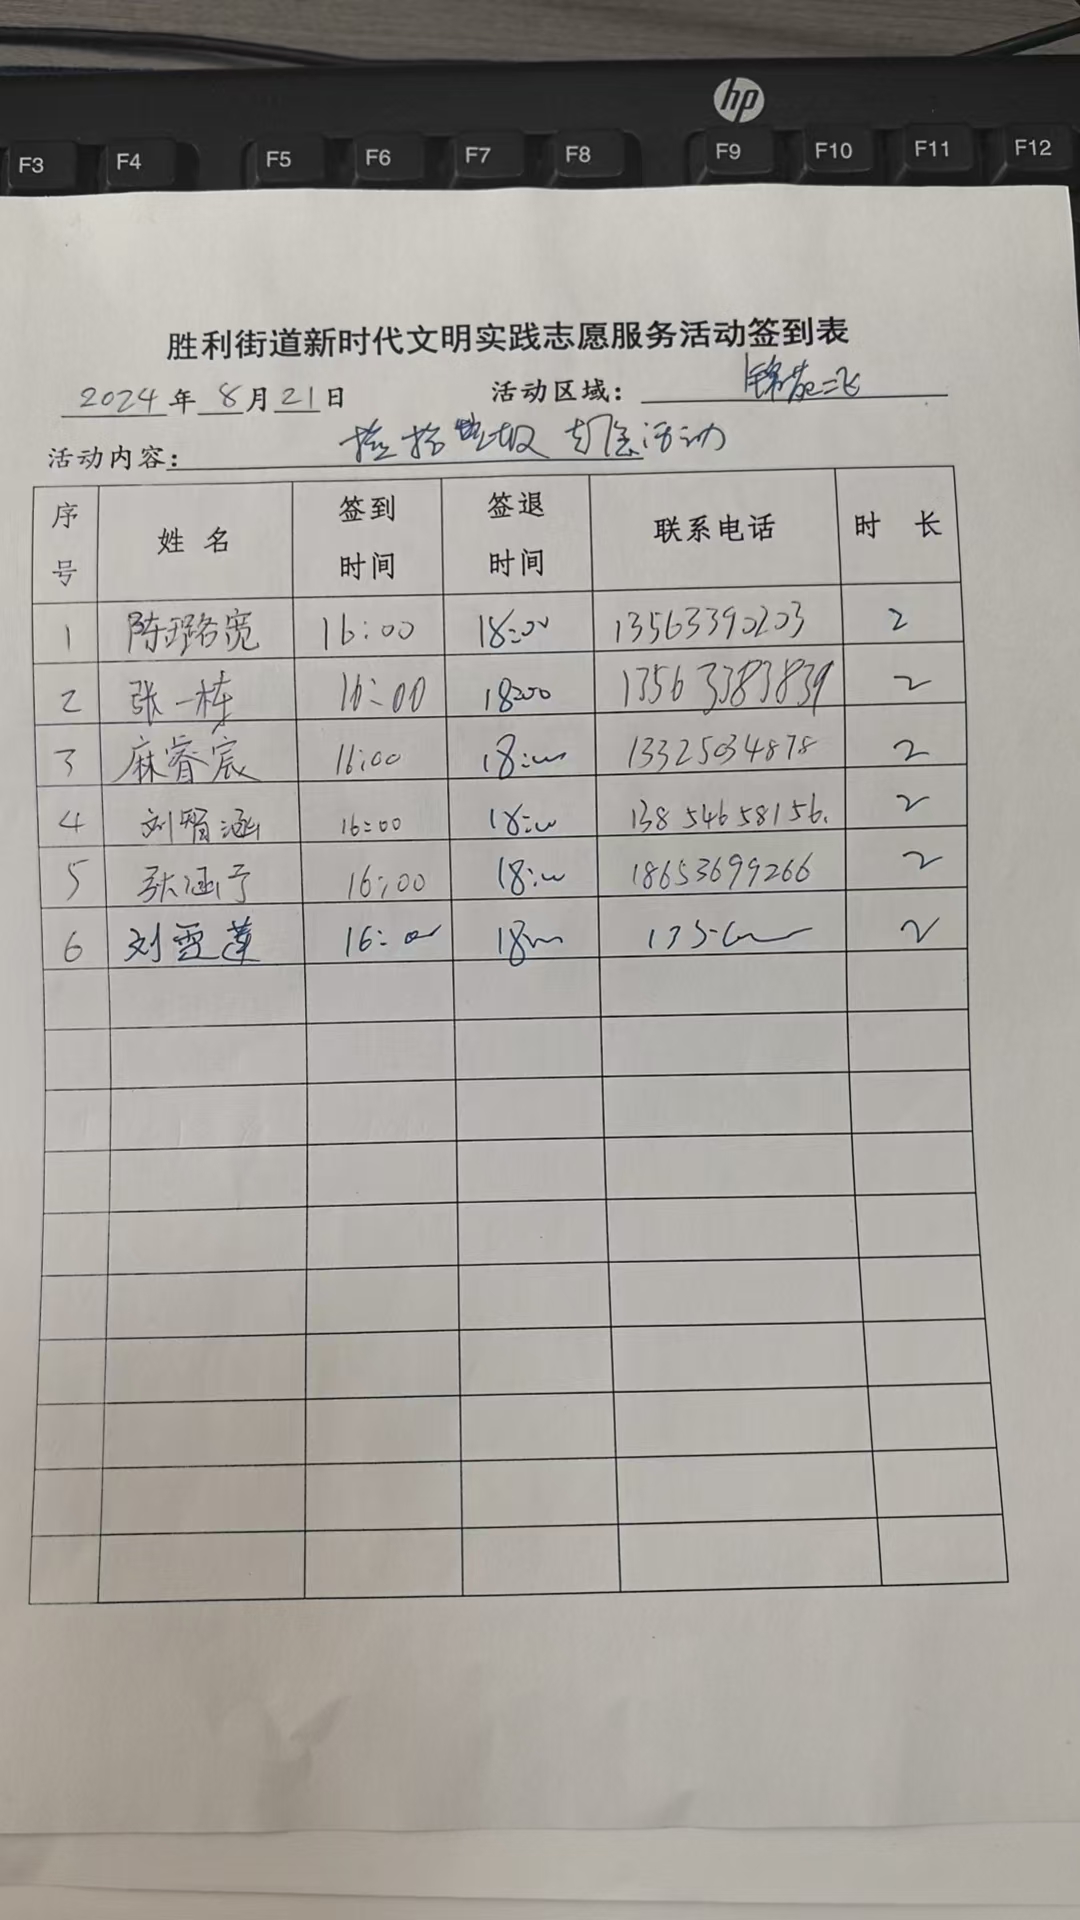 hp
F3 F4 F5 F6 F7 F8 F9 F10 F11 F12
胜利街道新时代文明实践志愿服务活动签到表
2024年8月21日 活动区域：锦苑二
活动内容：捡拾垃圾 志愿活动
序号 姓名 签到时间 签退时间 联系电话 时长
1 陈璐宽 16:00 18:00 13563390203 2
2 张一栋 16:00 18:00 13563383839 2
3 麻睿宸 16:00 18:00 13325034878 2
4 刘智涵 16:00 18:00 13854658156. 2
5 张涵予 16:00 18:00 18653699266 2
6 刘雪莲 16:00 18 135 2